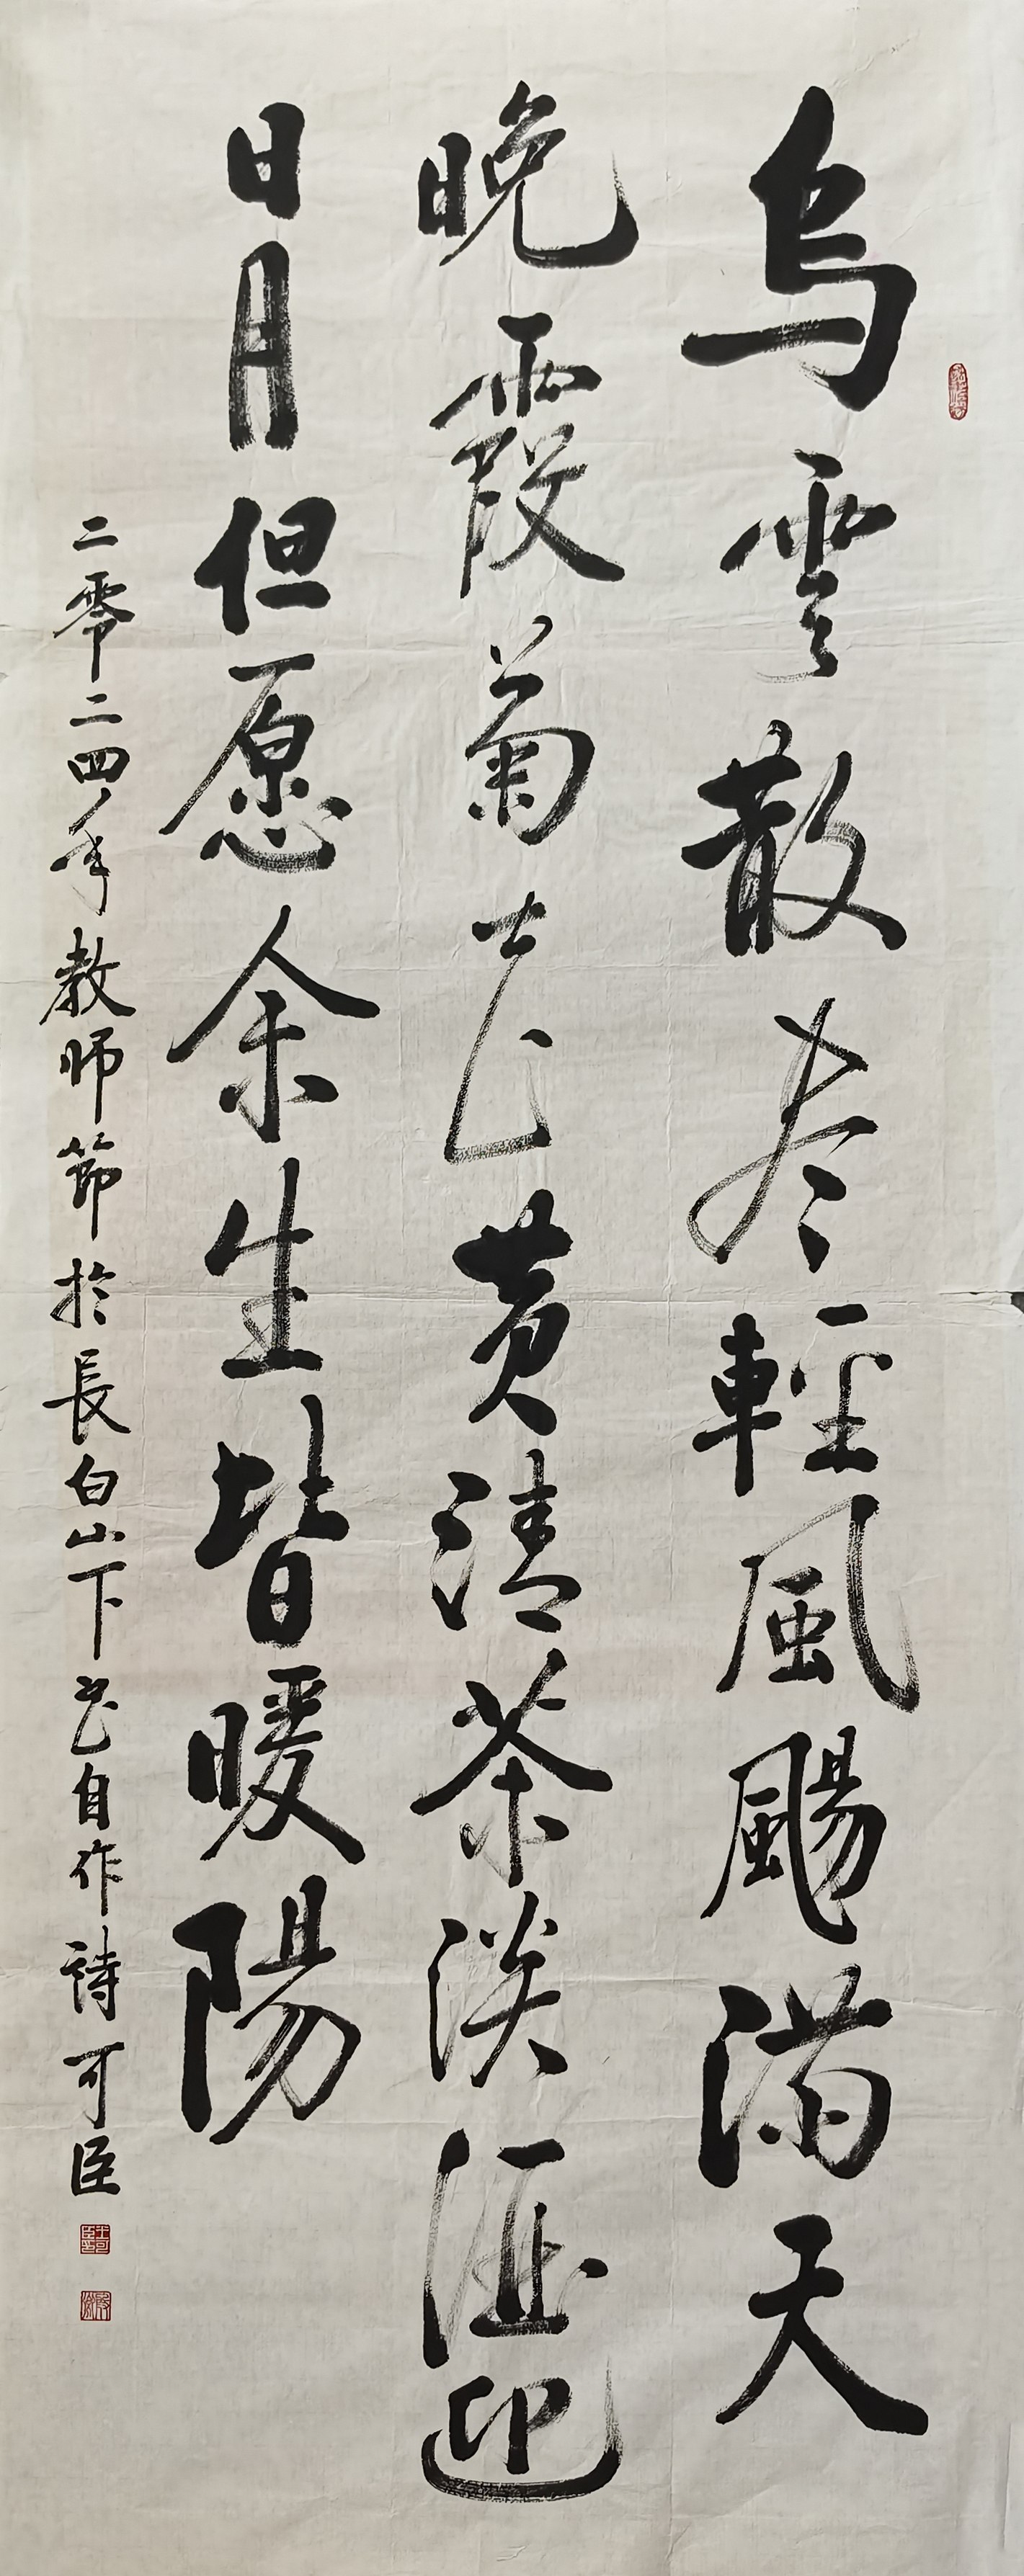 烏雲散尽輕風颺满天
晚霞菊花黄清茶淡酒迎
日月但愿余生皆暖陽
二零二四年教师節於長白山下书自作詩可臣